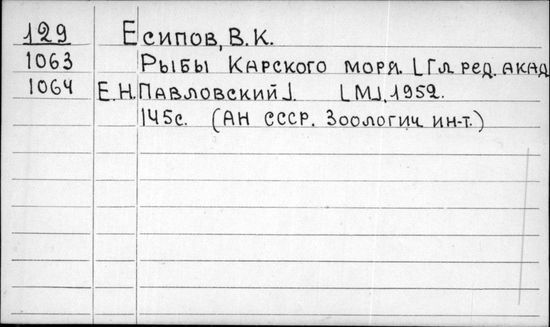 129 Есипов, В.К.
1063 Рыбы Карского моря. [Гл. ред. акад.
1064 Е.Н. Павловский]. [М.], 1952.
145с. (АН СССР. Зоологич. ин-т.)